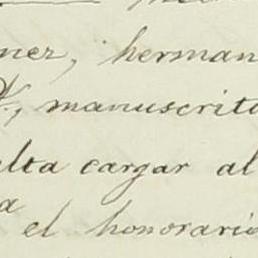 ner, herman
V., manuscrit
elta cargar al
a
el honorario